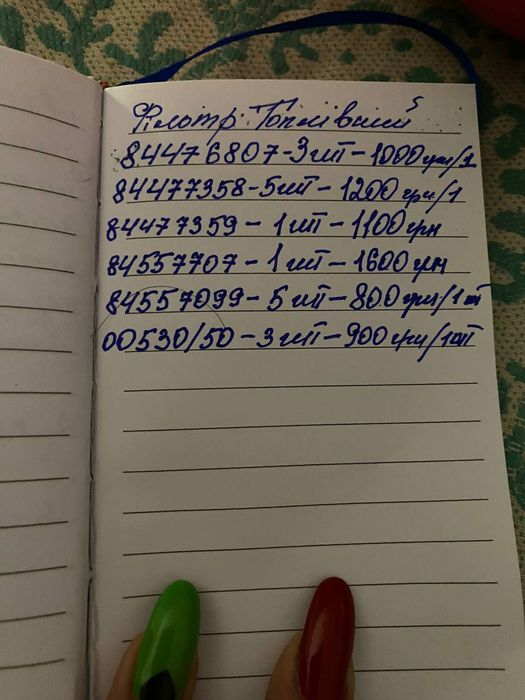 Фільтр Топлівний 5
84476807-3шт-1000грн/1
84477358-5шт-1200грн/1
84477359-1шт-1100грн
84557707-1шт-1600грн
84557099-5шт-800грн/1шт
00530/50-3шт-900грн/1шт